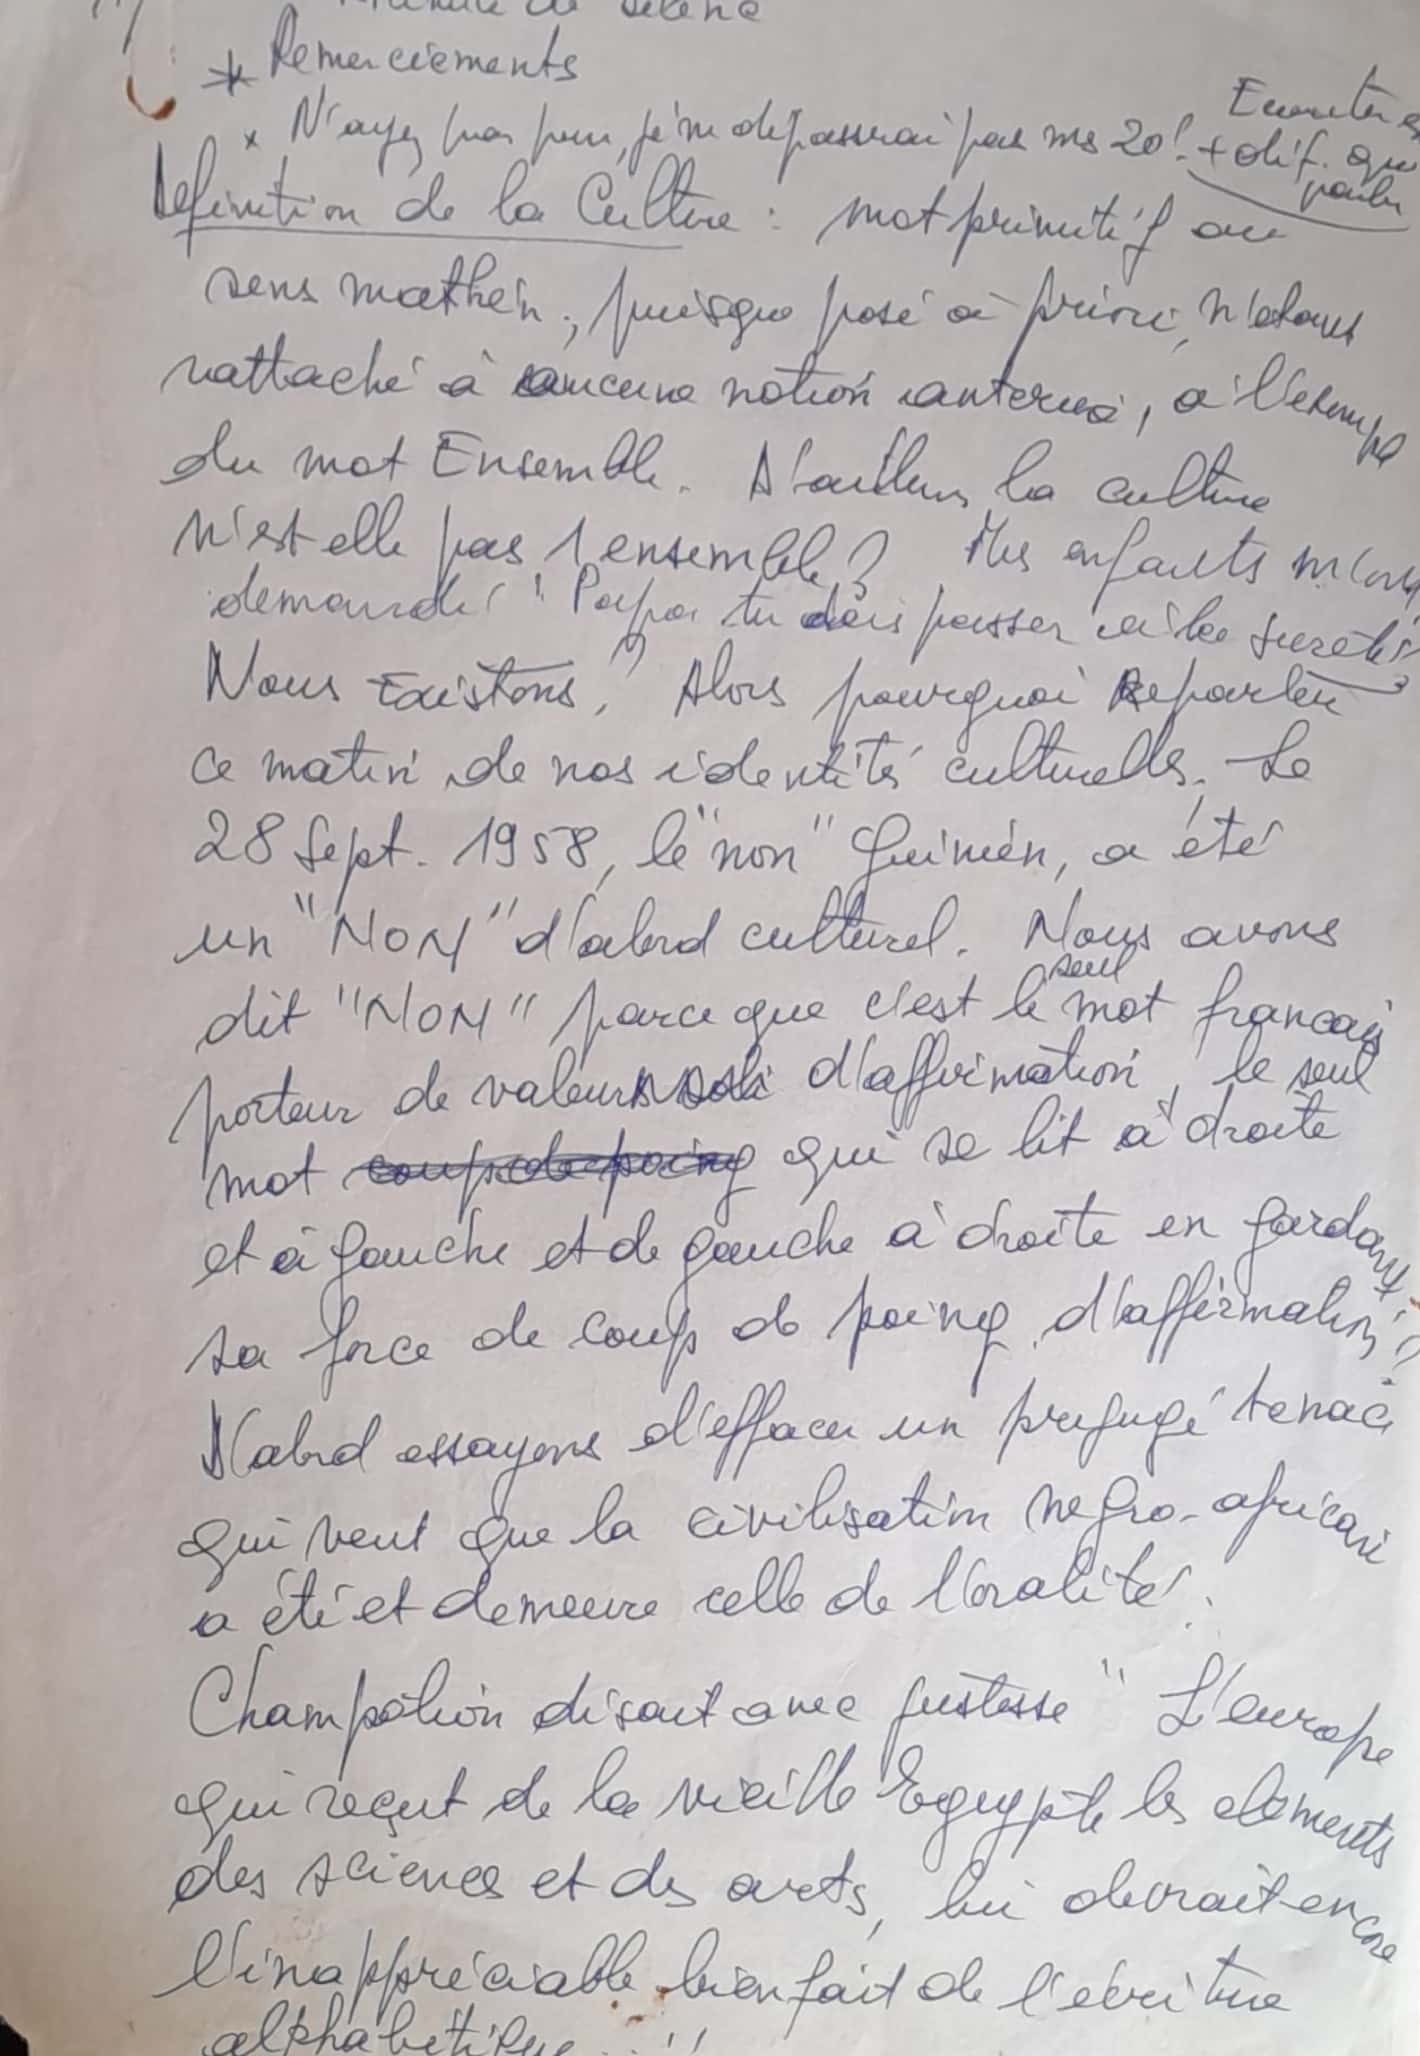 Minute de silence
* Remerciements
x N'ayez pas peur, je ne depasserai pas mes 20'. + dif. que
Ecouter est
parler
Définition de la Culture : mot primitif au
sens mathém., puisque posé à priori, n'étant
rattaché à aucune notion anterieure, à l'exemple
du mot Ensemble. D'ailleurs la culture
n'est elle pas 1 ensemble? Mes enfants m'ont
demandé : "Papa tu dois passer à la sureté?"
Nous Existons! Alors pourquoi Reparler
ce matin de nos identités culturelles. Le
28 Sept. 1958, le "non" Guinéen, a été
un "NON" d'abord culturel. Nous avons
dit "NON" parce que c'est le seul mot francais
porteur de valeurs d'affirmation, le seul
mot coup de poing qui se lit à droite
et à gauche et de gauche à droite en gardant
sa force de coup de poing d'affirmation?
D'abord essayons d'effacer un préjugé tenace
qui veut que la civilisation negro-africaine
a été et demeure celle de l'oralité.
Champolion disait avec justesse " L'europe
qui reçut de la vieille Egypte les elements
des sciences et des arts, lui devrait encore
l'inappréciable bienfait de l'écriture
alphabétique..."